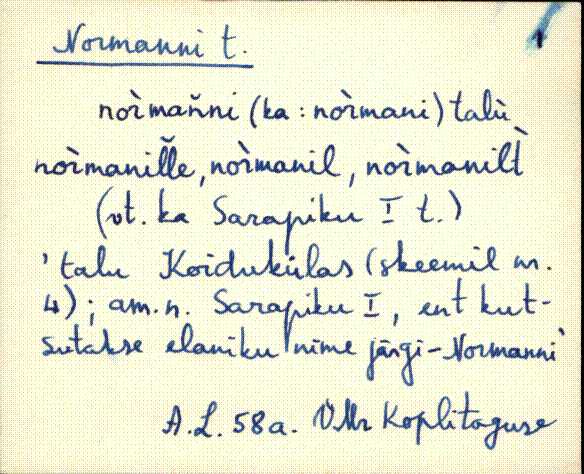 Normanni t.
1
nòrmaňni (ka : nòrmani) talù
nòrmaniľľe, nòrmanil, nòrmanilt̀
(vt. ka Sarapiku I t.)
' talu Koidukülas (skeemil nr.
4); am.n. Sarapiku I, ent kut-
sutakse elaniku nime järgi - Normanni'
A.L. 58a. VMr Koplitaguse